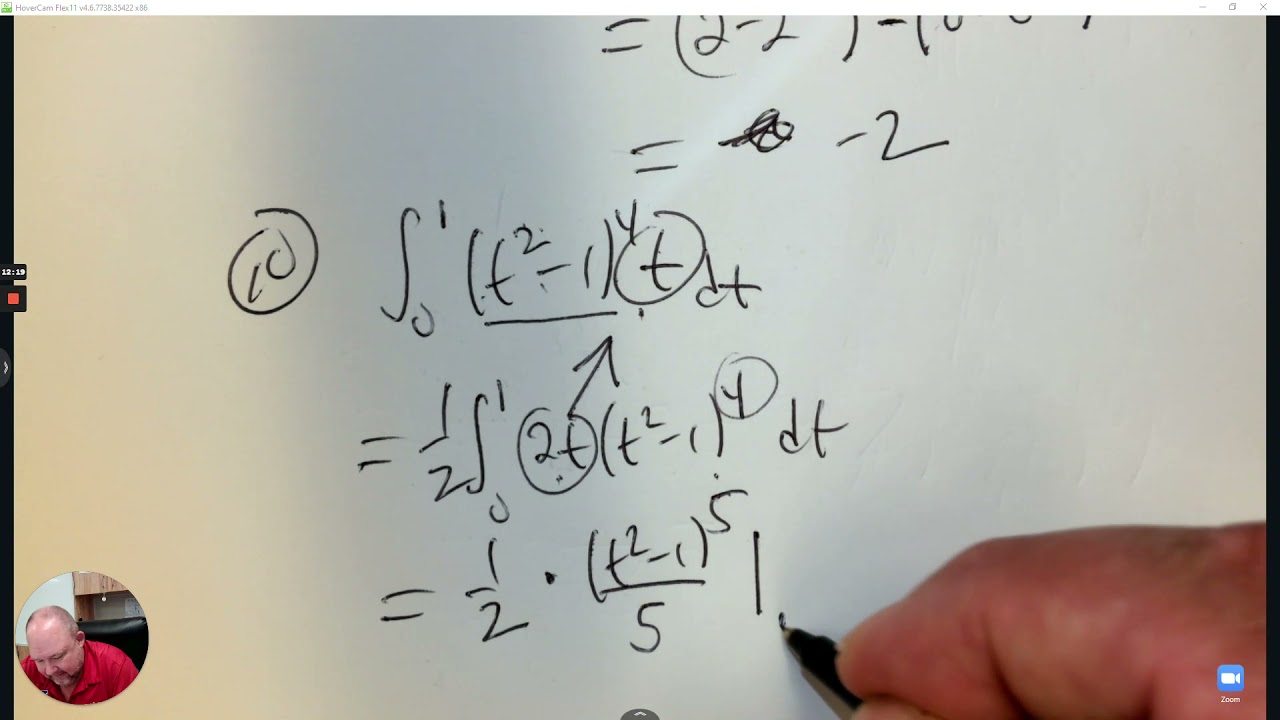 HoverCam Flex11 v4.6.7738.35422 x86
= (2-2
= -2
12:19
10 ∫₀¹ (t²-1)⁴ t dt
= 1/2 ∫₀¹ 2t (t²-1)⁴ dt
= 1/2 · (t²-1)⁵/5 |
Zoom